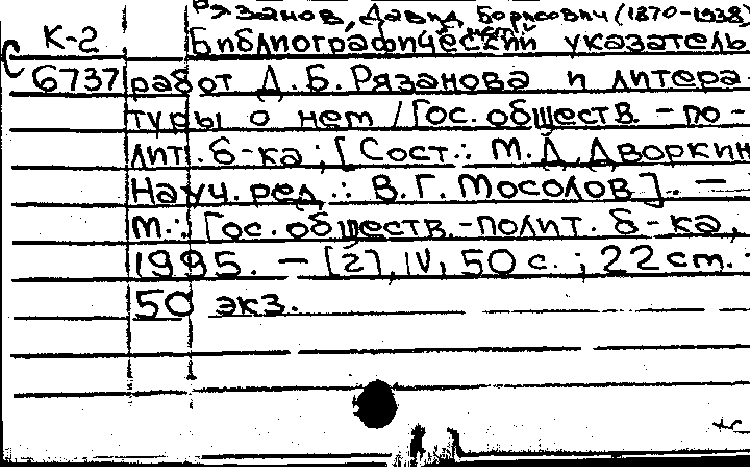 Рязанов, Давид Борисович (1870-1938)
К-2 Библиографический указатель
С 6737 работ Д.Б.Рязанова и литера-
туры о нем / Гос. обществ.-по-
лит. б-ка ; [Сост.: М.Д.Дворкин
Науч.ред.: В.Г.Мосолов]. —
М.: Гос.обществ.-полит. б-ка,
1995. — [2], IV, 50 с. ; 22 см. :
50 экз.